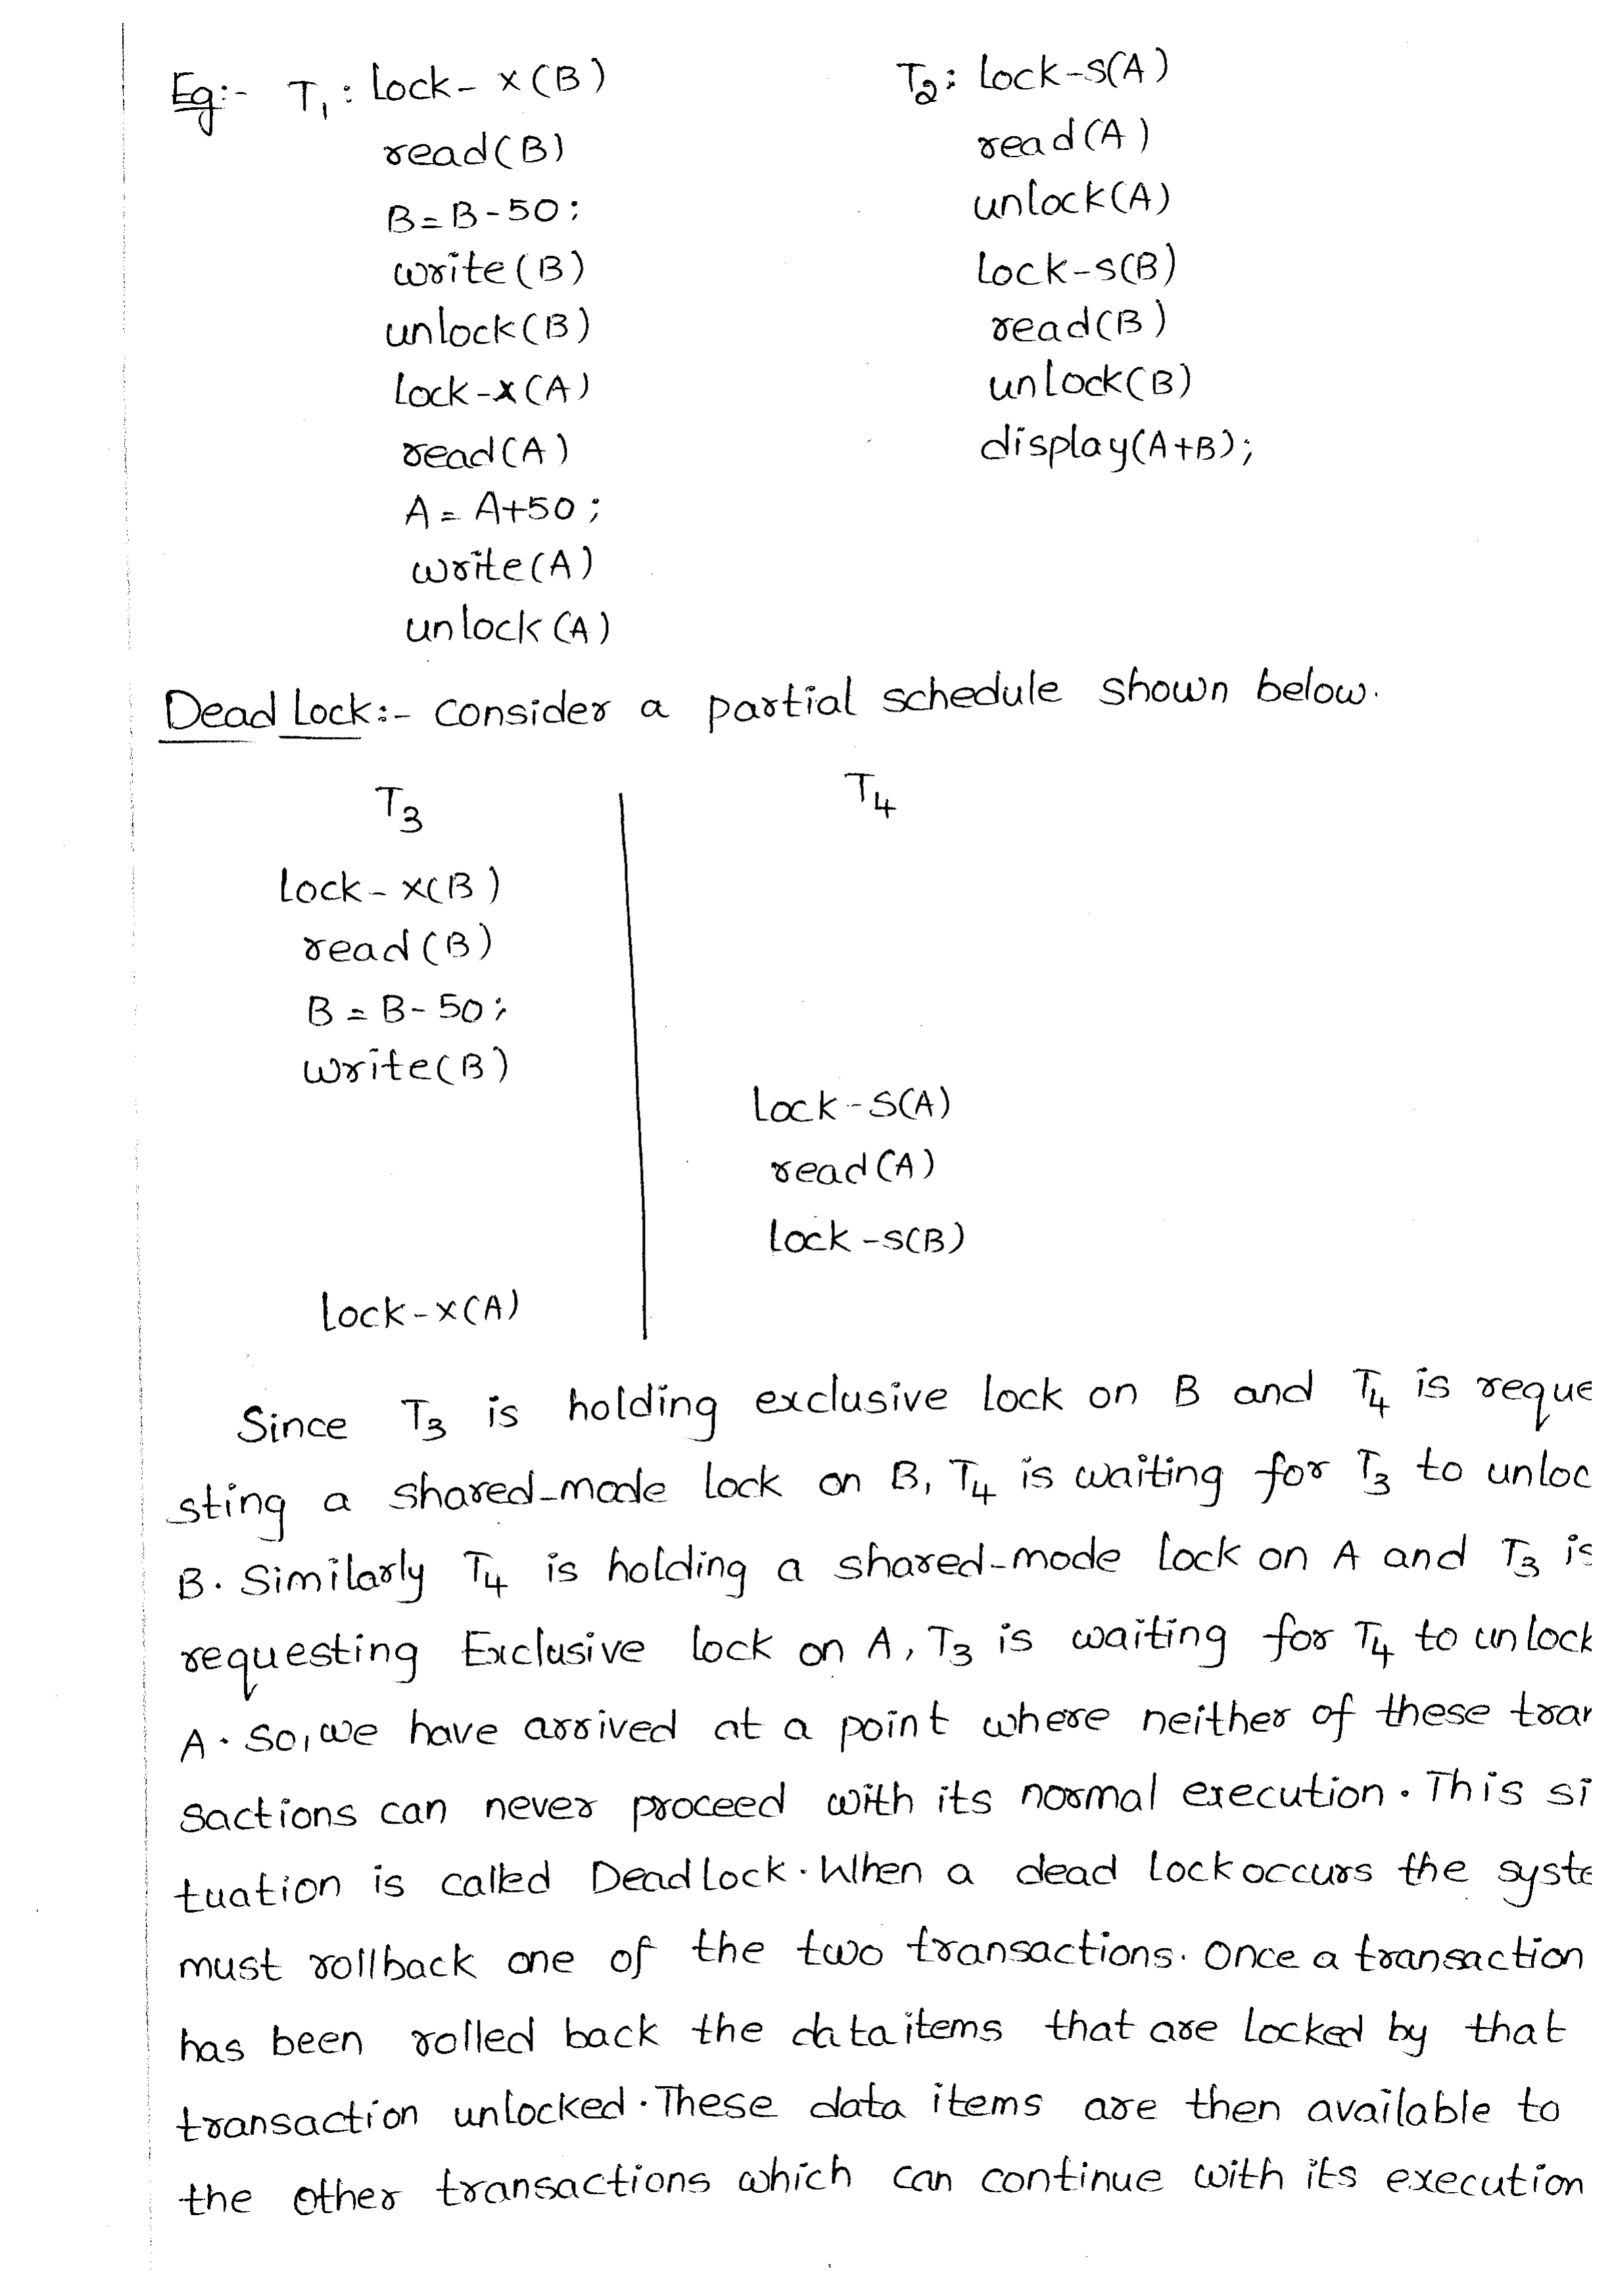 Eg:- T1: Lock-X(B)
read(B)
B=B-50;
write(B)
unlock(B)
Lock-X(A)
read(A)
A=A+50;
write(A)
unlock(A)
T2: Lock-S(A)
read(A)
unlock(A)
Lock-S(B)
read(B)
unlock(B)
display(A+B);
Dead Lock:- consider a partial schedule shown below.
T3 T4
Lock-X(B)
read(B)
B=B-50;
write(B)
Lock-S(A)
read(A)
Lock-S(B)
Lock-X(A)
Since T3 is holding exclusive lock on B and T4 is reque
sting a shared-mode lock on B, T4 is waiting for T3 to unloc
B. Similarly T4 is holding a shared-mode lock on A and T3 is
requesting Exclusive lock on A, T3 is waiting for T4 to unlock
A. So, we have arrived at a point where neither of these tran
sactions can never proceed with its normal execution. This si
tuation is called Deadlock. When a dead lock occurs the syste
must rollback one of the two transactions. Once a transaction
has been rolled back the dataitems that are locked by that
transaction unlocked. These data items are then available to
the other transactions which can continue with its execution